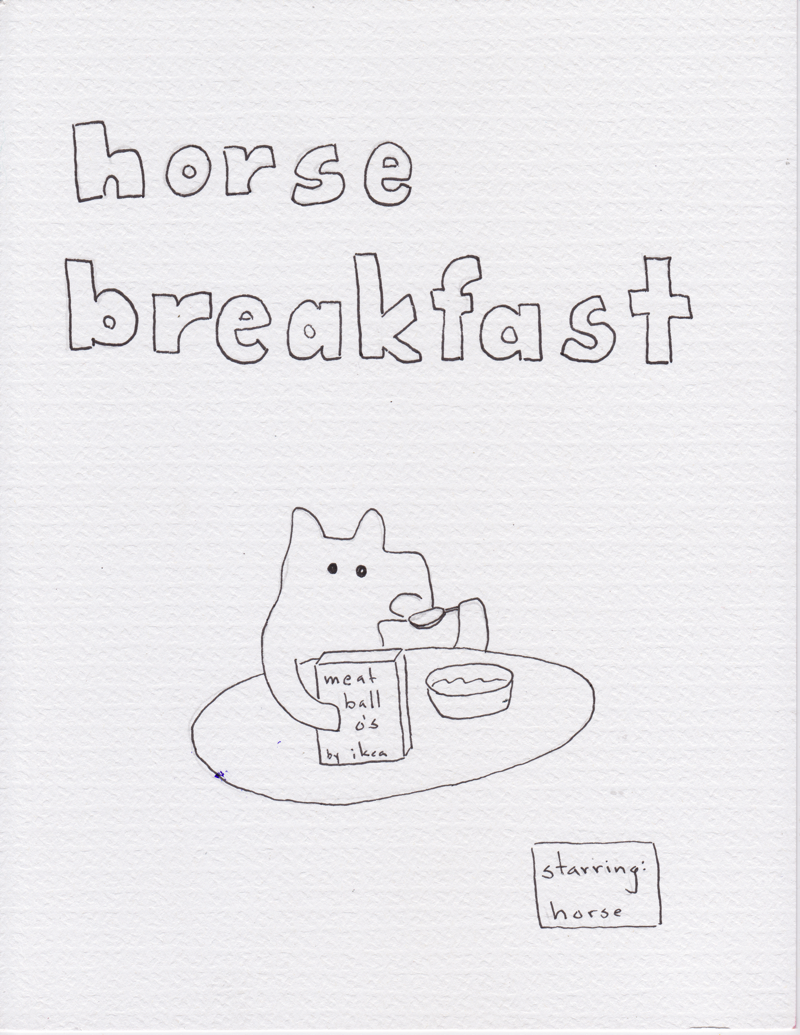 horse
breakfast
meat
ball
o's
by ikea
starring:
horse